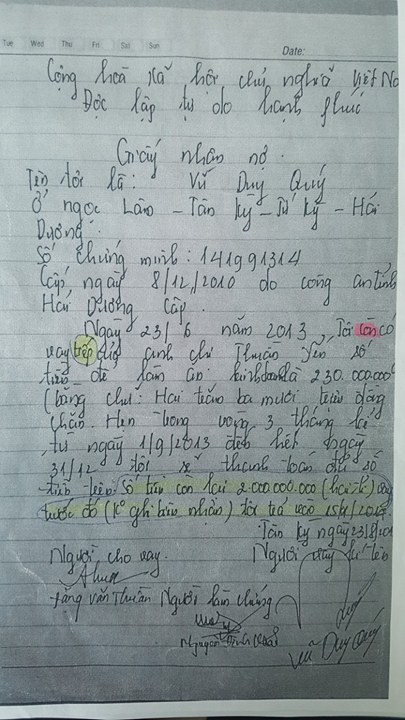 Tue Wed Thu Fri Sat Sun Date:
Cộng hoà xã hội chủ nghĩa Việt Na
Độc lập tự do hạnh phúc
Giấy nhân nơ.
Tên tôi là: Vũ Duy Quý
Ở ngọc Lâm - Tân Kỳ - Tứ Kỳ - Hải
Dương.
Số chứng minh: 141991314
Cấp ngày 8/12/2010 do công an tỉnh
Hải Dương Cấp.
Ngày 23/6 năm 2013, Tôi còn có
vay tiếp của anh chị Thuân Yến số
tiền để làm ăn kinh doanh là 230.000.000đ
(bằng chữ: Hai trăm ba mươi triệu đồng
chẵn. Hẹn trong vòng 3 tháng kể
từ ngày 1/9/2013 đến hết ngày
31/12 tôi sẽ thanh toán đủ số
tiền trên. Số tiền còn lại 2.000.000.000 (hai tỉ) vay
trước đó (k° ghi biên nhận) tôi trả vào
Tân Kỳ ngày 23/8/201
Người cho vay Người vay kí tên
Thuân
Đặng Văn Thuân Người làm chứng
Nguyễn
Vũ Duy Quý